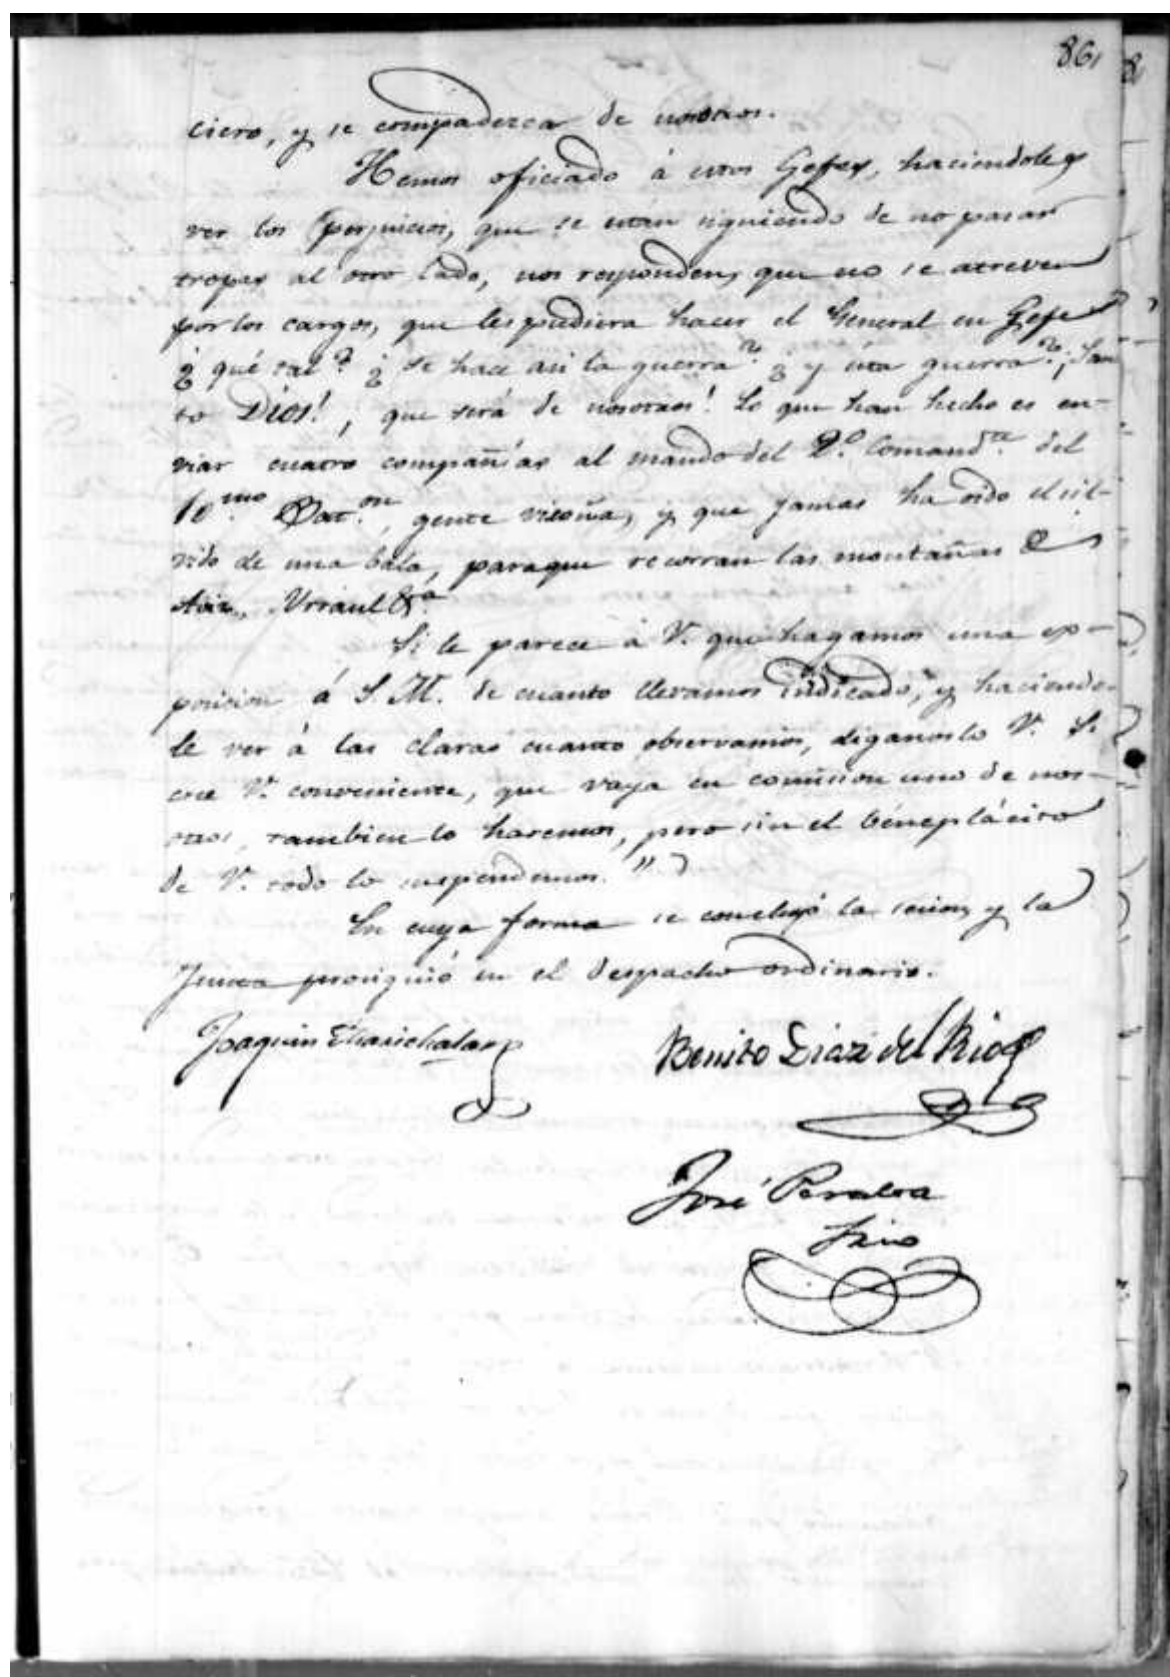 86,
ciero, y se compadezca de nosotros.
Hemos oficiado á estos Gefes, haciendoles
ver los perjuicios, que se están siguiendo de no pasar
tropas al otro lado, nos responden, que no se atreven
por los cargos, que les pudiera hacer el General en Gefe
¿ qué tal? ¿ se hace asi la guerra? ¿ y esta guerra? ¡San
to Dios!, que será de nosotros! Lo que han hecho es en-
viar cuatro compañías al mando del 2.º Comand.te del
10.mo Bat.on, gente visoña, y que jamas ha oido el sil-
vido de una bala, paraque recorran las montañas de
Aoiz, Urraul &.a
Si le parece á V. que hagamos una ex-
posicion á S. M. de cuanto llevamos indicado, y haciendo-
le ver á las claras cuanto observamos, diganoslo V. Si
cree V. conveniente, que vaya en comision uno de nos-
otros, tambien lo haremos, pero sin el beneplácito
de V. todo lo suspendemos."
En cuya forma se concluyó la sesion, y la
Junta prosiguió en el despacho ordinario.
Joaquin Marichalar
Benito Diaz del Rio
José Peralta
Srio